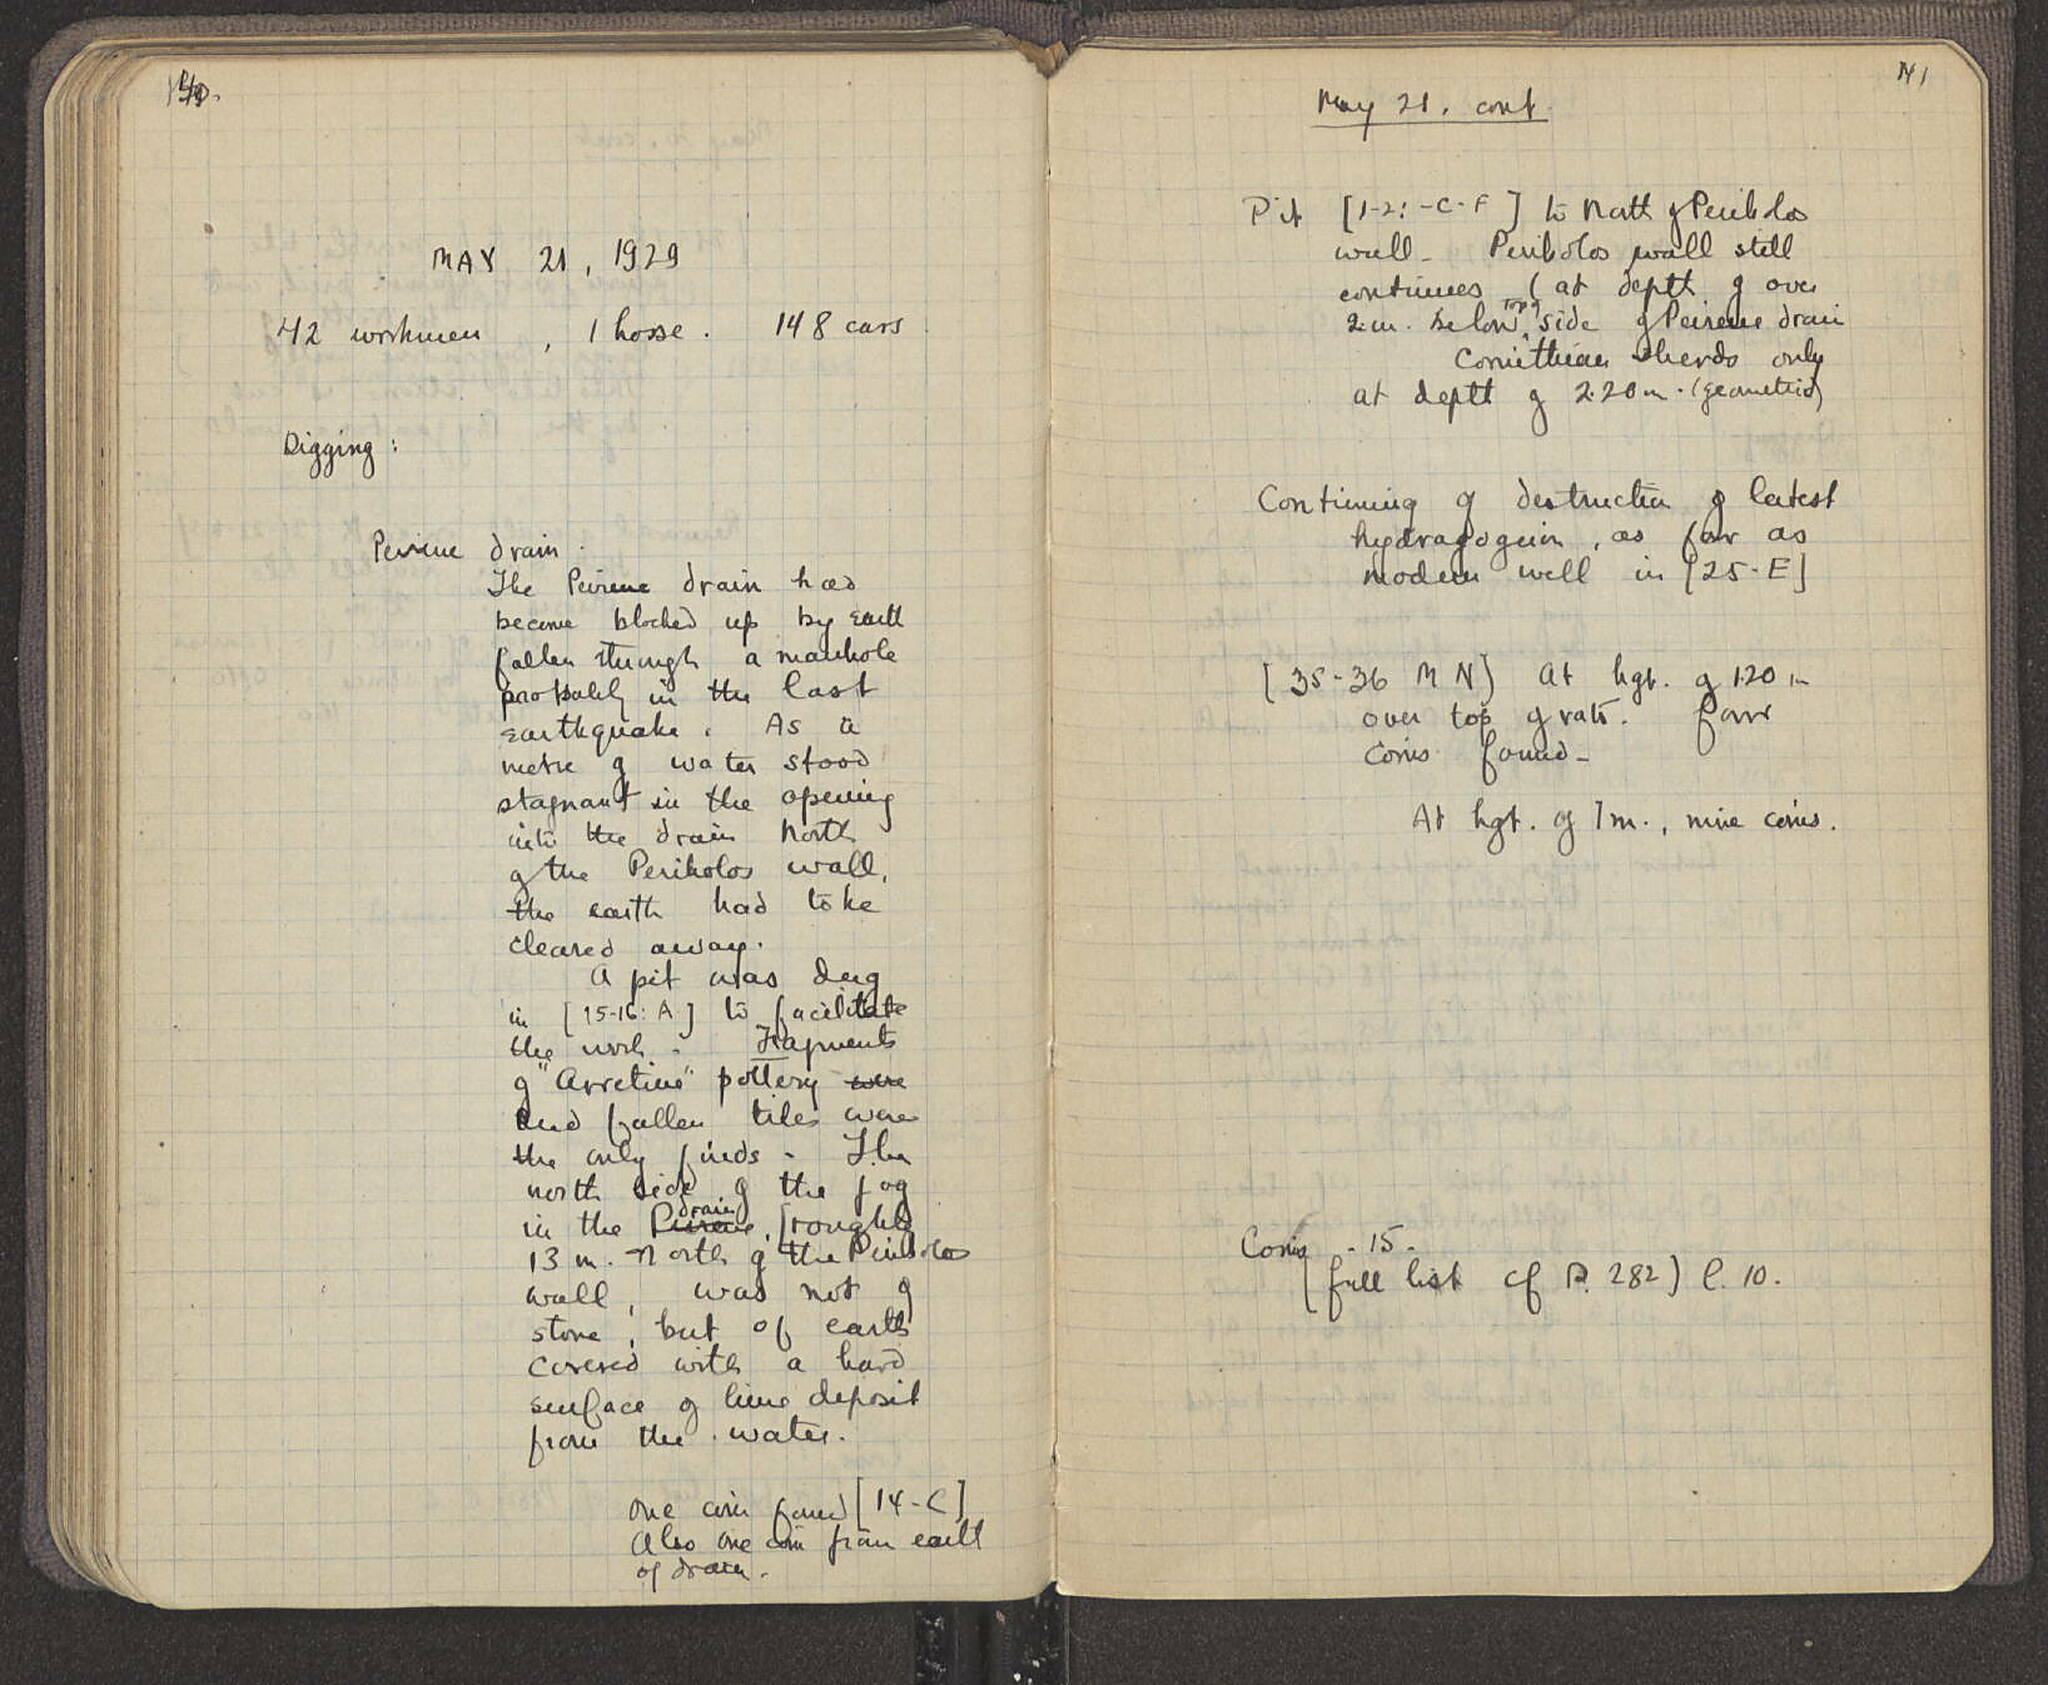 140.
MAY 21, 1929
42 workmen, 1 horse. 148 cars.
Digging:
Peirene drain.
The Peirene drain had
become blocked up by earth
fallen through a manhole
probably in the last
earthquake. As a
metre of water stood
stagnant in the opening
into the drain North
of the Peribolos wall,
the earth had to be
cleared away.
A pit was dug
in [15-16: A] to facilitate
the work. Fragments
of "Arretine" pottery were
and fallen tiles were
the only finds. The
north side of the jog
drain
in the Peirene, [roughly
13 m. North of the Peribolos
wall, was not of
stone, but of earth
covered with a hard
surface of lime deposit
from the water.
One coin found [14-C]
Also one coin from earth
of drain.
141
May 21. cont.
Pit [1-2: -C-F] to North of Peribolos
wall. Peribolos wall still
continues (at depth of over
top of
2 m. below side of Peirene drain
Corinthian sherds only
at depth of 2.20 m. (geometric)
Continuing of destruction of latest
hydragogeion, as far as
modern well in [25-E]
[35-36 M N] At hgt. of 1.20 m
over top of vats. Four
coins found.
At hgt. of 1 m., nine coins.
Coins - 15.
(full list cf P. 282) l. 10.